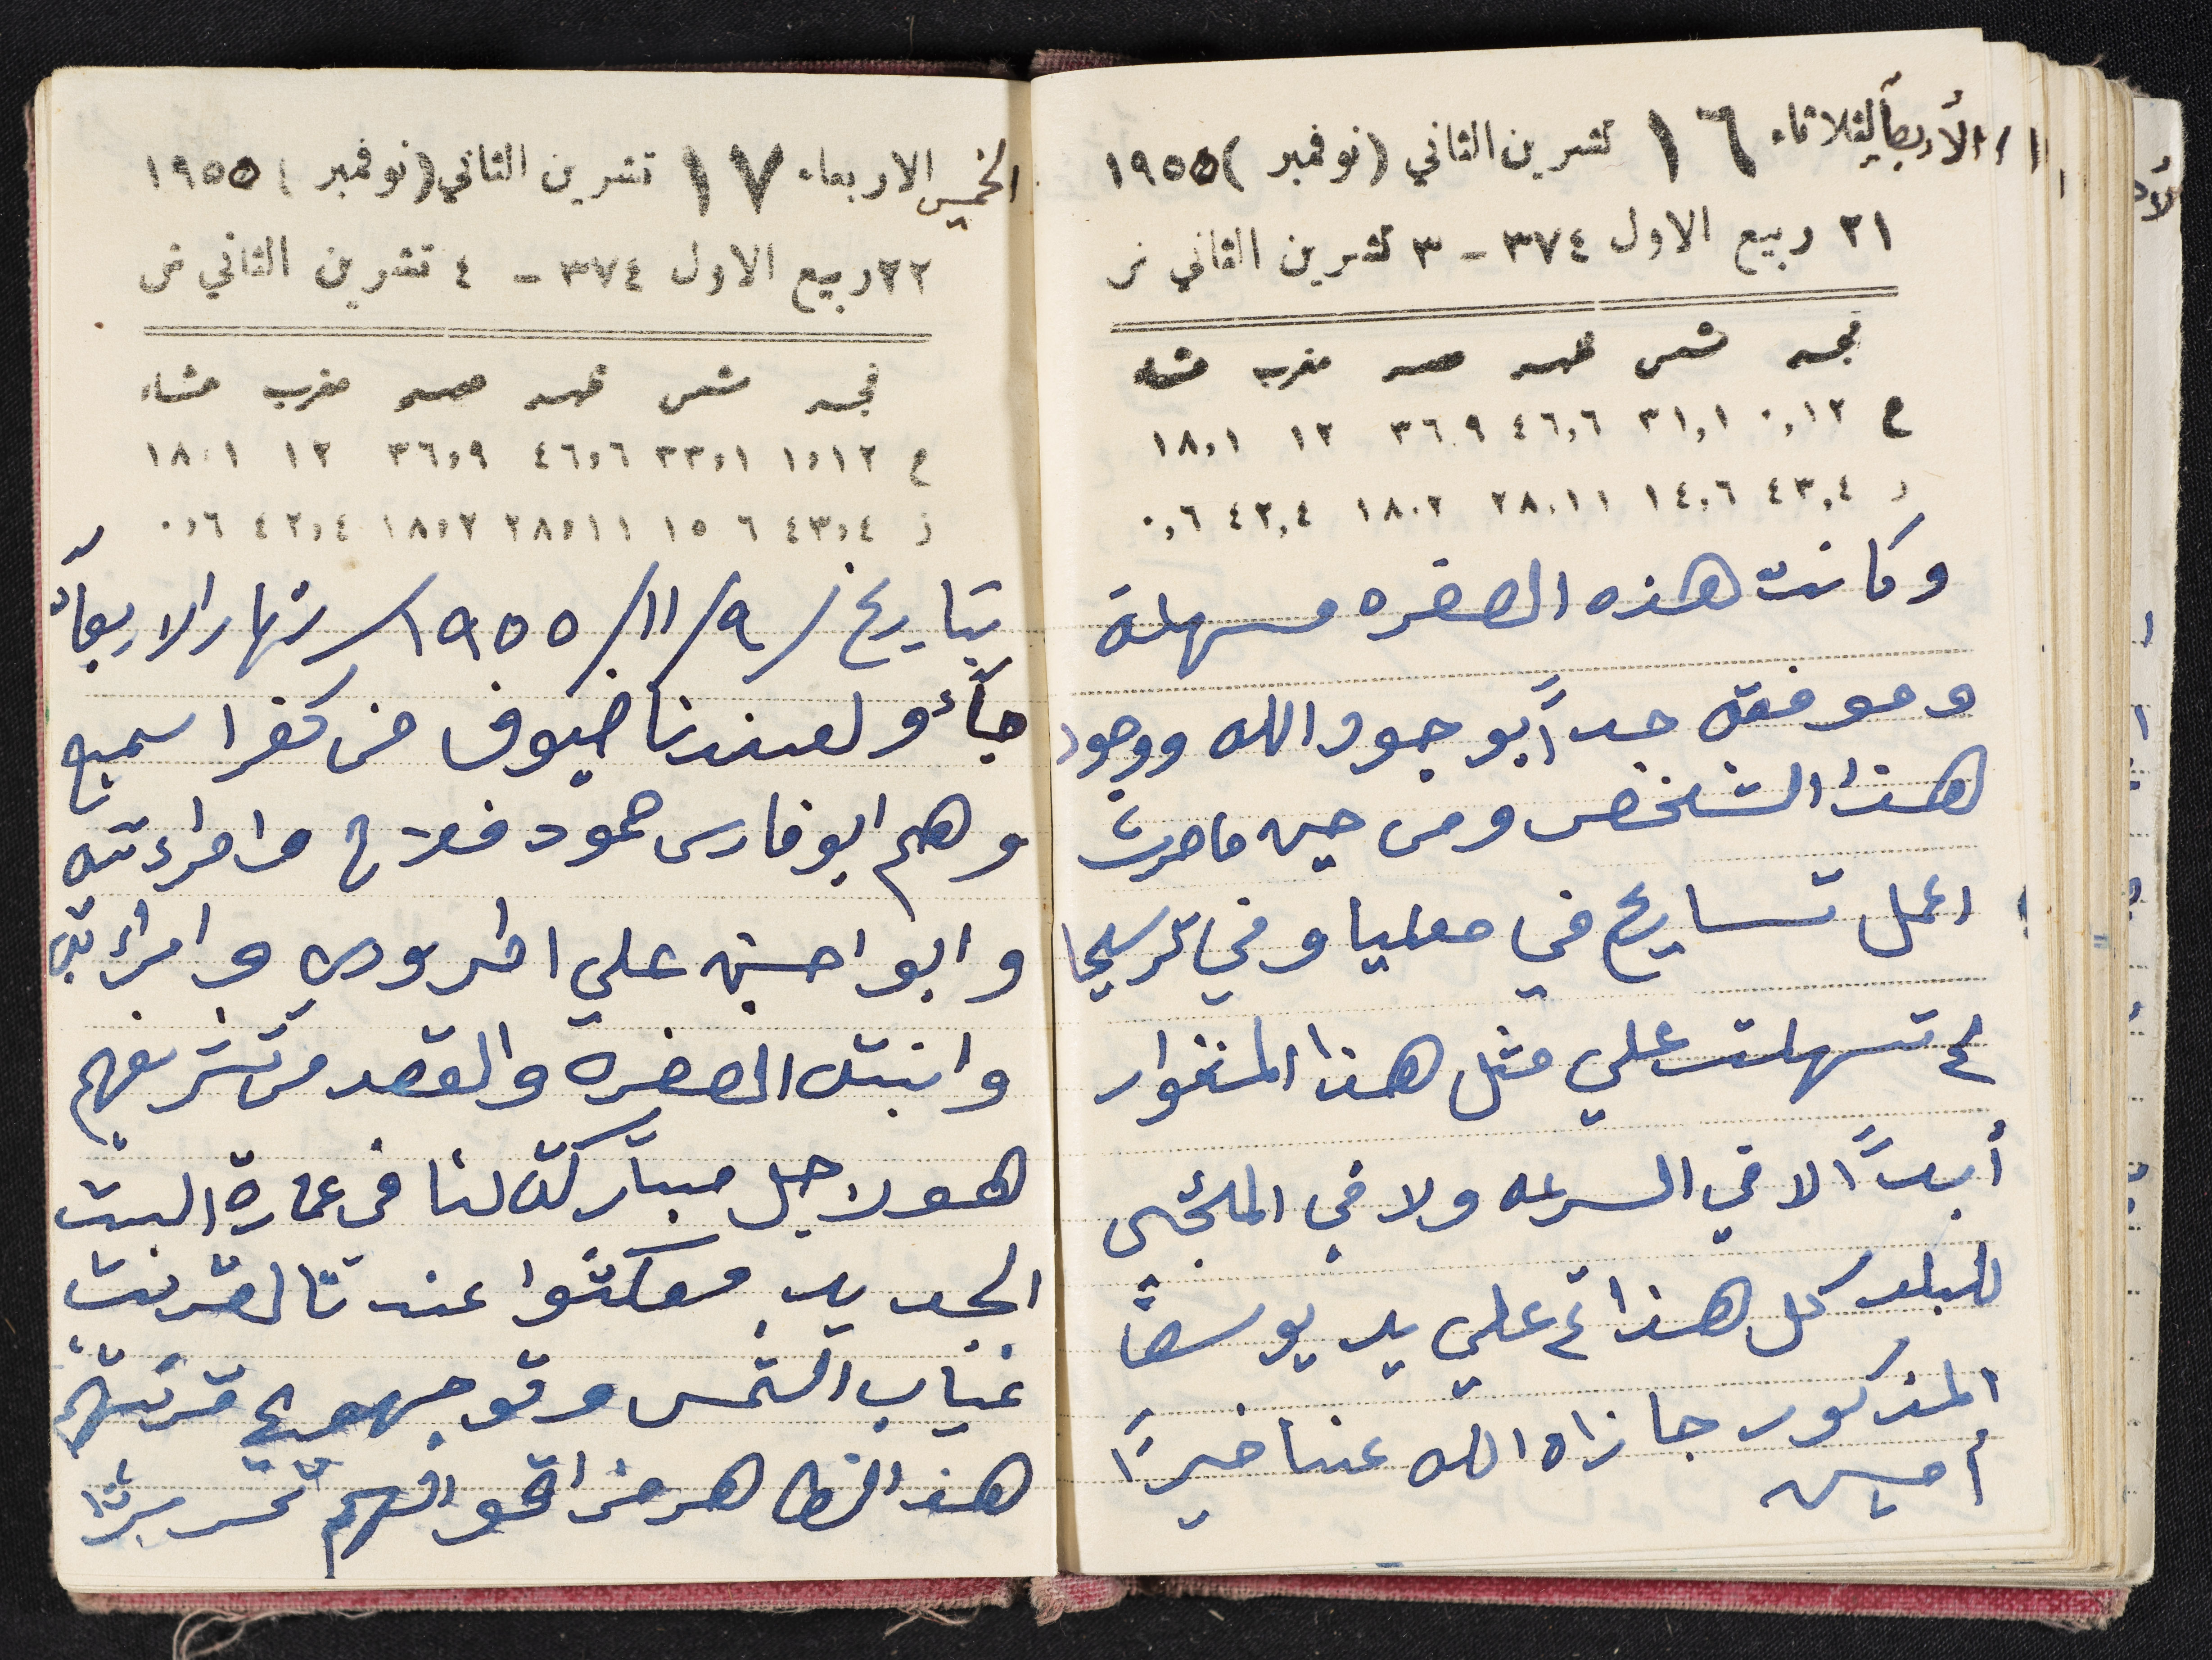 الأربعآ الثلاثاء ١٦ تشرين الثاني (نوفمبر) ١٩٥٥
٢١ ربيع الاول ٣٧٤ - ٣ تشرين الثاني ش
فجر شمس ظهر عصر مغرب عشاء
ع ٠,١٢ ٣١,١ ٤٦,٦ ٣٦,٩ ١٢ ١٨,١
ز ٤٣,٤ ١٤,٦ ٢٨,١١ ١٨,٢ ٤٢,٤ ٠,٦
وكانت هذه الصفره مسهلة
وموفقه جداً بوجود الله ووجود
هذا الشخص ومن حين ما صرت
اعمل تساريح في معليا وفي ترسيحا
لم تسهلت علي مثل هذا المنوار
أبداً لا في السرعه ولا في الملجئ
للبلد كل هذا تم علي يد يوسف
المذكور جازاه الله عنا خيراً
أمين
الخميس الاربعاء ١٧ تشرين الثاني (نوفمبر) ١٩٥٥
٢٢ ربيع الاول ٣٧٤ - ٤ تشرين الثاني ش
فجر شمس ظهر عصر مغرب عشاء
ع ١,١٢ ٣٣,١ ٤٦,٦ ٣٦,٩ ١٢ ١٨,١
ز ٤٣,٤ ١٥ ٦ ٢٨,١١ ١٨,٢ ٤٢,٤ ٠,٦
بتاريخ / ٩ / ١١ / ١٩٥٥ / نهار الاربعآء
جآءو لعندنا ضيوف من كفر اسميع
وهم ابو فارس حمود فلاح وامرءته
وابو احسين علي اطرودي وامرأته
وابنته الصغره والقصد من تشريفهم
هو لاجل مباركة لنا في عمارة البيت
الجديد ومكثوا عندنا لقريت
غياب الشمس وتوجهو الى قريتهم
هذا الظاهر من اقوالهم